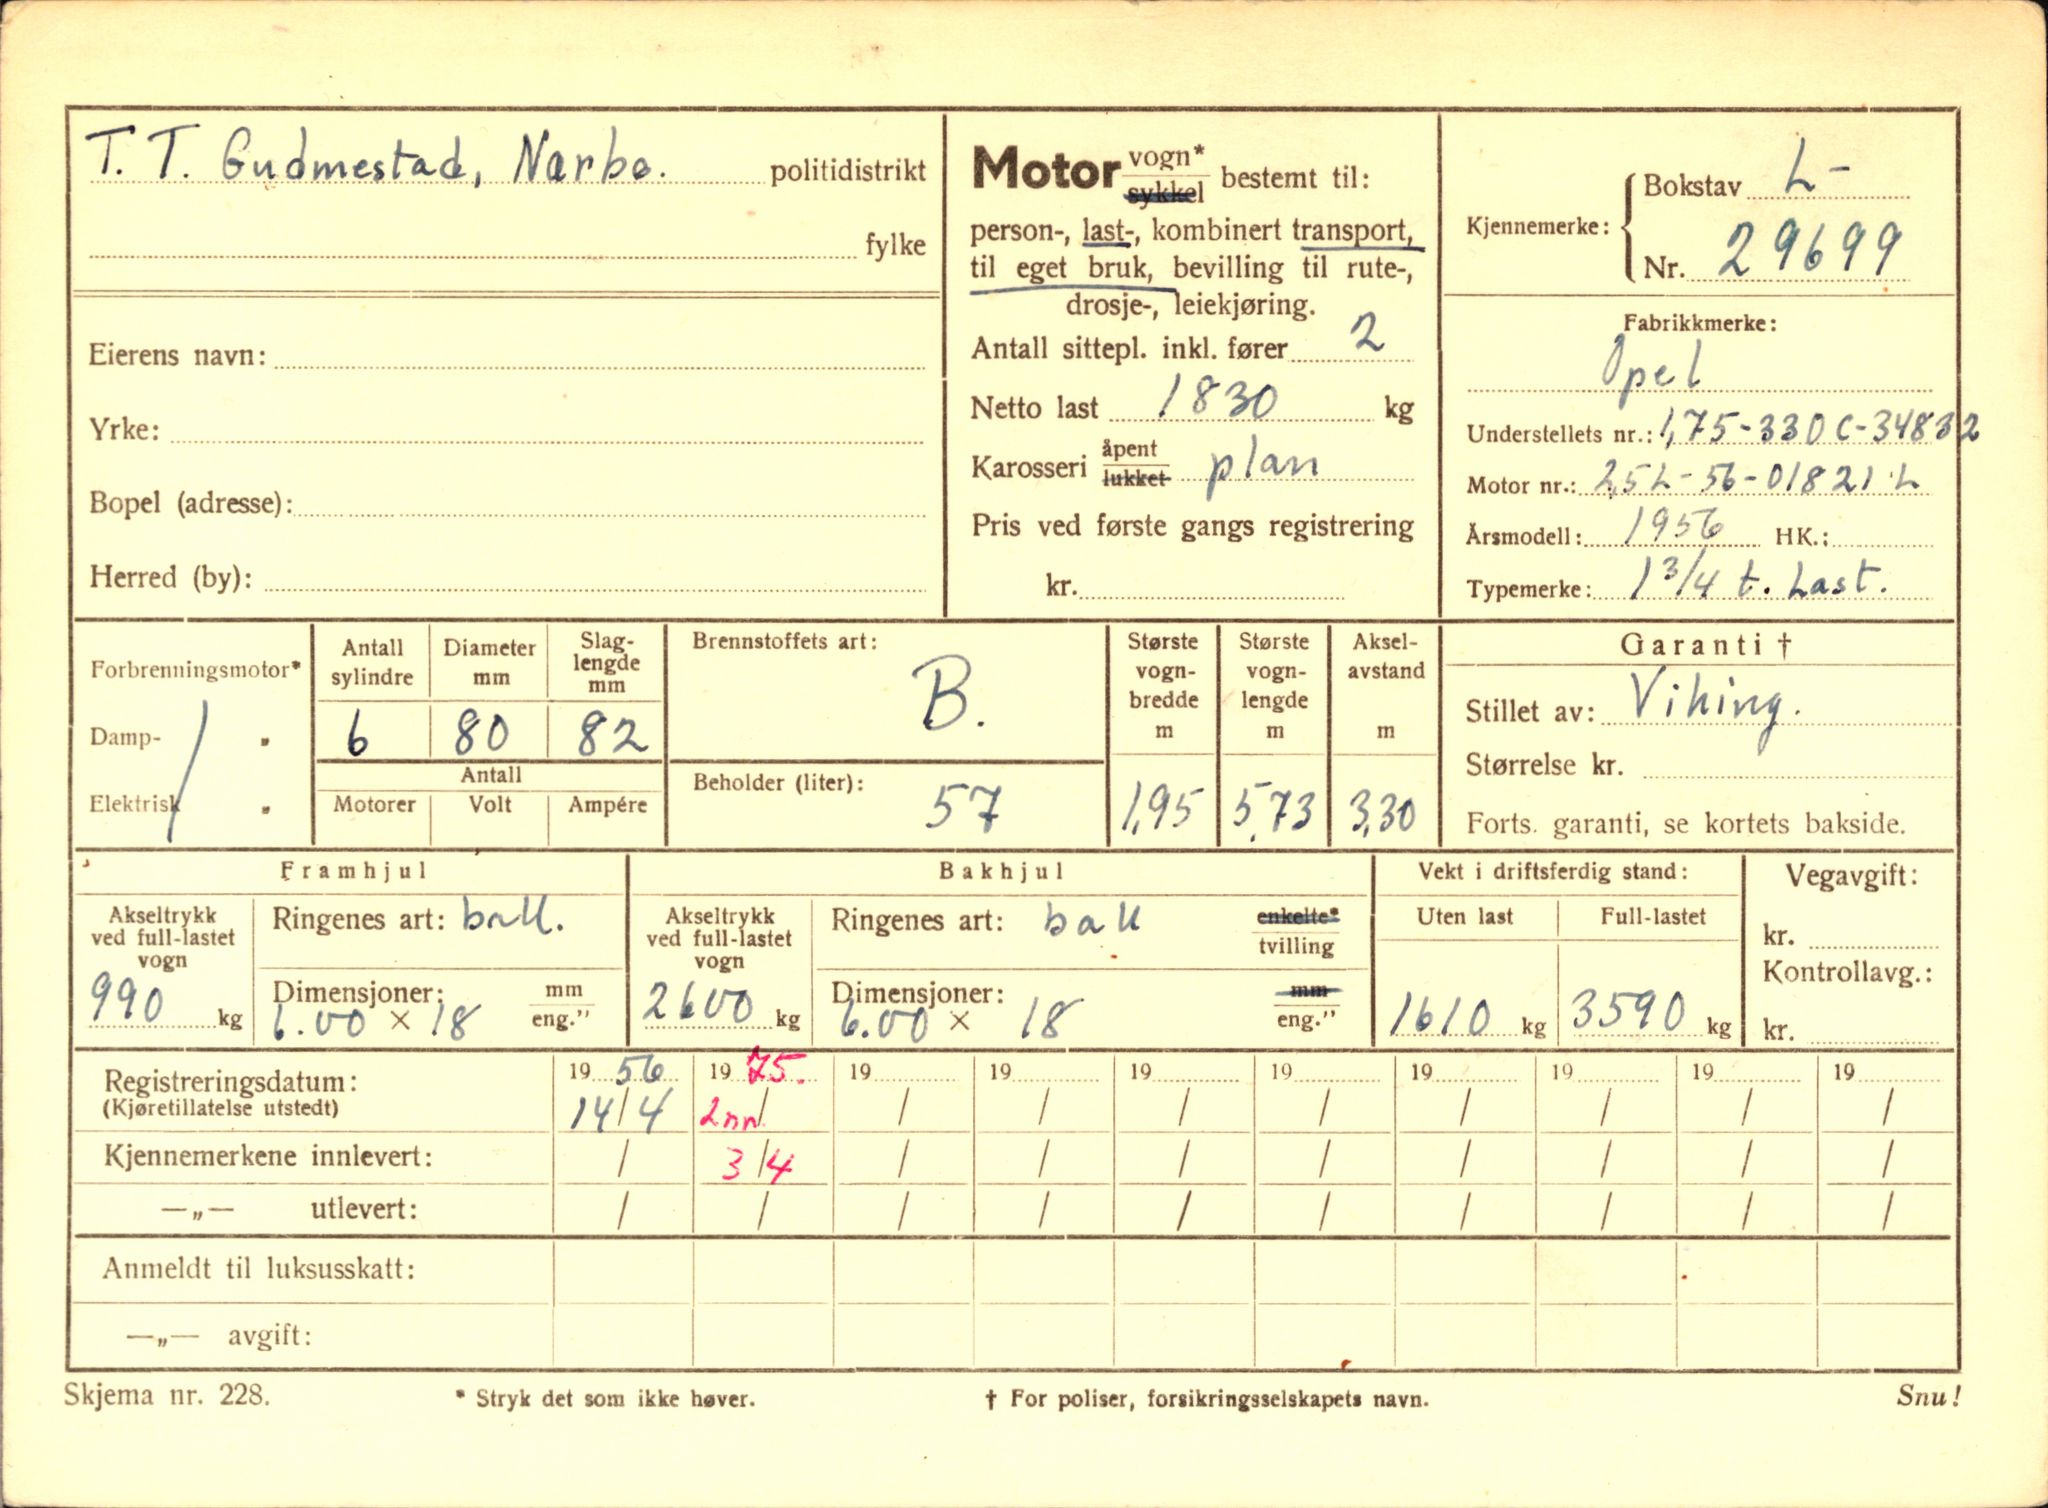 T. T. Gudmestad, Nærbø. politidistrikt
fylke
Eierens navn:
Yrke:
Bopel (adresse):
Herred (by):
Motor vogn* sykkel bestemt til:
person-, last-, kombinert transport,
til eget bruk, bevilling til rute-,
drosje-, leiekjøring.
Antall sittepl. inkl. fører 2
Netto last 1830 kg
Karosseri åpent lukket plan
Pris ved første gangs registrering
kr.
Kjennemerke: Bokstav L-
Nr. 29699
Fabrikkmerke:
Opel
Understellets nr.: 1,75-330C-34832
Motor nr.: 2,5L-56-01821 L
Årsmodell: 1956 HK.:
Typemerke: 1 3/4 t. Last.
Forbrenningsmotor*
Damp- "
Elektrisk "
Antall sylindre Diameter mm Slag-lengde mm
6 80 82
Antall
Motorer Volt Ampére
Brennstoffets art:
B.
Beholder (liter): 57
Største vogn-bredde m Største vogn-lengde m Aksel-avstand m
1,95 5,73 3,30
Garanti †
Stillet av: Viking.
Størrelse kr.
Forts. garanti, se kortets bakside.
Framhjul
Akseltrykk ved full-lastet vogn
990 kg
Ringenes art: ball.
Dimensjoner: mm eng."
6.00 × 18
Bakhjul
Akseltrykk ved full-lastet vogn
2600 kg
Ringenes art: ball enkelte* tvilling
Dimensjoner: mm eng."
6.00 × 18
Vekt i driftsferdig stand:
Uten last Full-lastet
1610 kg 3590 kg
Vegavgift:
kr.
Kontrollavg.:
kr.
Registreringsdatum: 19 56 19 75. 19 19 19 19 19 19 19 19
(Kjøretillatelse utstedt) 14/4 / / / / / / / / /
Kjennemerkene innlevert: / 3/4 / / / / / / / /
—„— utlevert: / / / / / / / / / /
Anmeldt til luksusskatt:
—„— avgift:
Skjema nr. 228. * Stryk det som ikke høver. † For poliser, forsikringsselskapets navn. Snu!